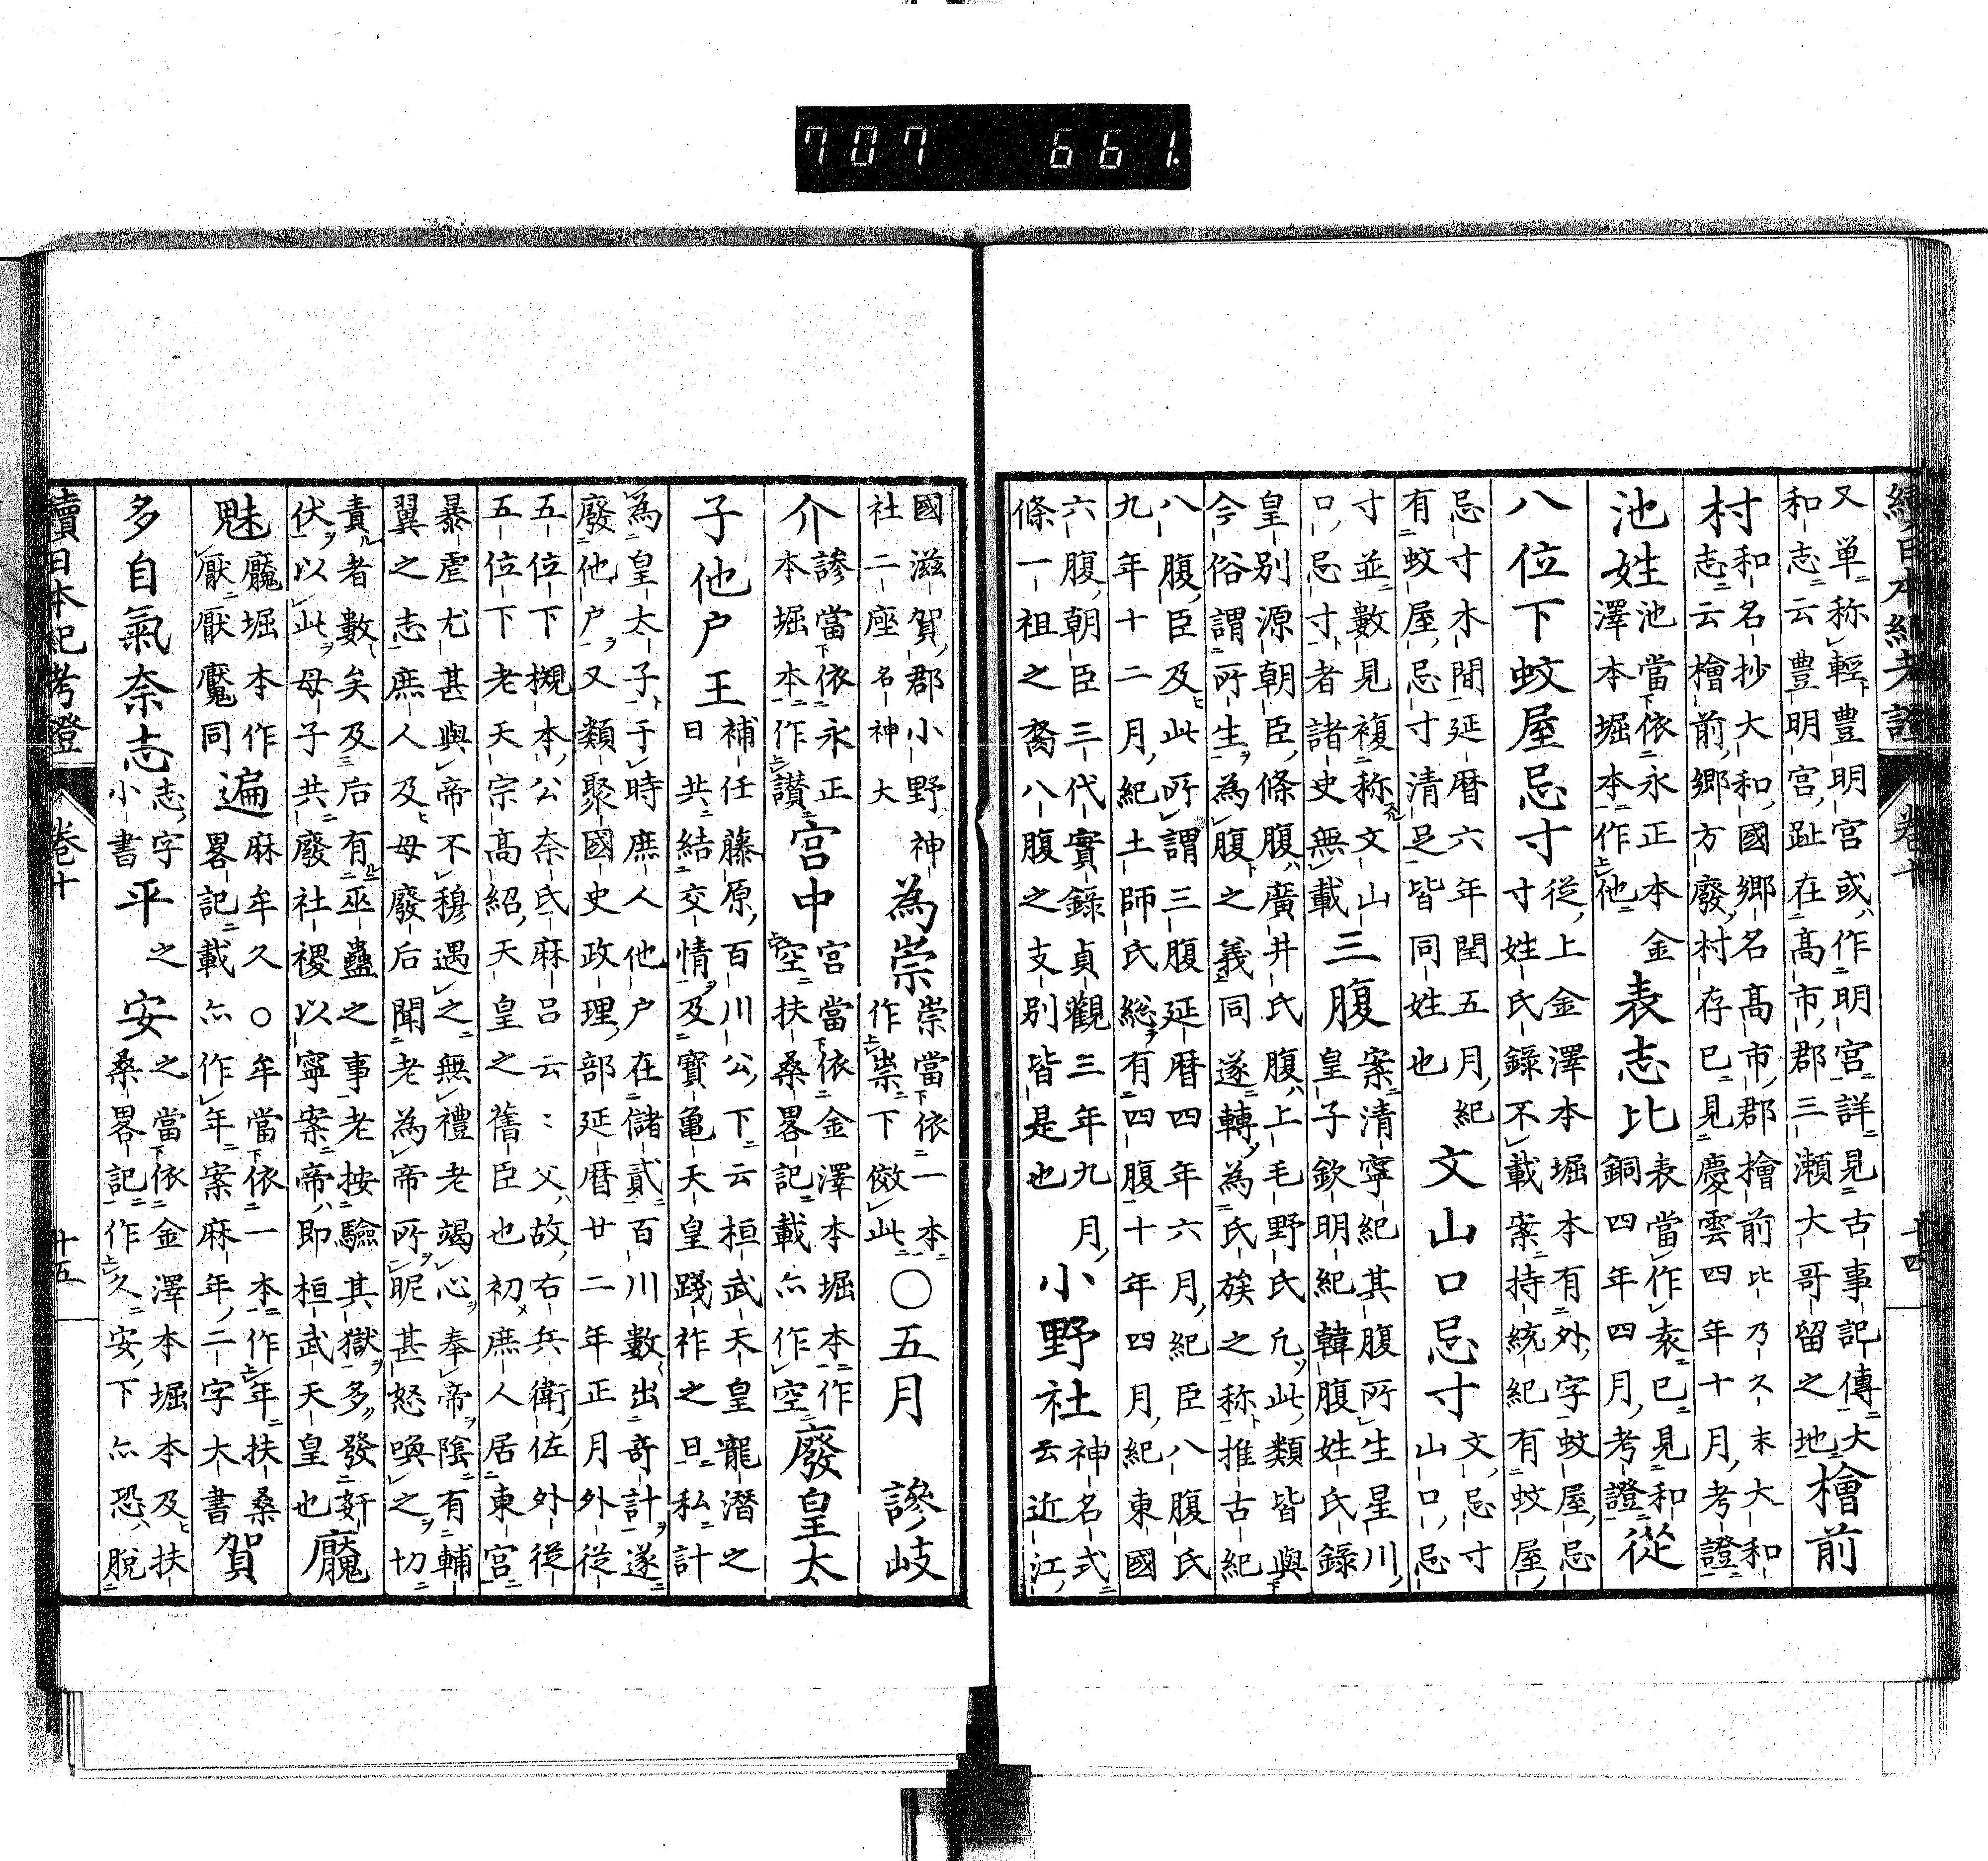 707 661.
續日本紀考證 卷十 十四
又単称輕豊明宮或作明宮詳見古事記傳大
和志云豊明宮趾在高市郡三瀬大哥留之地檜前
村和名抄大和國鄉名高市郡檜前比乃久末大和
志云檜前鄉方廢村存已見慶雲四年十月考證
池姓池當依永正本金
澤本堀本作他表志比表當作袁已見和
銅四年四月考證從
八位下蚊屋忌寸從上金澤本堀本有外字蚊屋忌
寸姓氏錄不載案持統紀有蚊屋
忌寸木間延暦六年閏五月紀
有蚊屋忌寸清足皆同姓也文山口忌寸文忌寸
山口忌
寸並數見複称文山
口忌寸者諸史無載三腹案清寧紀其腹所生星川
皇子欽明紀韓腹姓氏録
皇別源朝臣條腹廣井氏腹上毛野氏凢此類皆與
今俗謂所生為腹之義同遂轉為氏族之称推古紀
八腹臣及此所謂三腹延暦四年六月紀臣八腹氏
九年十二月紀土師氏総有四腹十年四月紀東國
六腹朝臣三代實録貞觀三年九月
條一祖之裔八腹之支別皆是也小野社神名式
云近江
國滋賀郡小野神
社二座名神大為崇崇當依一本
作祟下傚此〇五月 謲岐
介謲當依永正
本堀本作讃宮中宮當依金澤本堀本作
空扶桑畧記載亦作空廢皇太
子他戸王補任藤原百川公下云桓武天皇寵潛之
日共結交情及寳亀天皇踐祚之日私計
為皇太子于時庶人他戸在儲貳百川數出奇計遂
廢他戸又類聚國史政理部延暦廿二年正月外從
五位下槻本公奈氐麻呂云々父故右兵衛佐外從
五位下老天宗高紹天皇之舊臣也初庶人居東宮
暴虐尤甚與帝不穆遇之無禮老竭心奉帝陰有輔
翼之志庶人及母廢后聞老為帝所昵甚怒喚之切
責者數矣及后有巫蠱之事老按驗其獄多發姧
伏以此母子共廢社禝以寧案帝即桓武天皇也魘
魅魘堀本作
厭厭魘同遍麻牟久〇牟當依一本作年扶桑
畧記載亦作年案麻年二字大書賀
多自氣奈志志字
小書平之 安之當依金澤本堀本及扶
桑畧記作久安下亦恐脫
續日本紀考證 卷十 十五